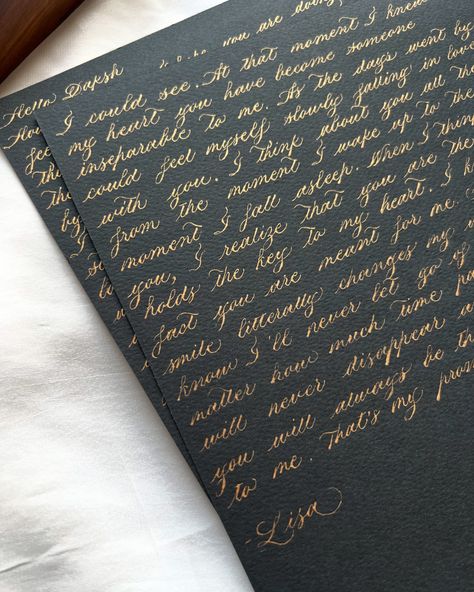 Hello Daksh
you are doing,
I could see. At that moment I knew
my heart you have become someone
inseparable to me. As the days went by
could feel myself slowly falling in love
with you. I think about you all the
from the moment I wake up to the
moment I fall asleep. When I think
you, I realize that you are the
holds the key to my heart. I
fact you are meant for me.
smile litterally changes my
know I'll never let go of
matter how much time
will never disappear
you will always be
to me. That's my
-Lisa